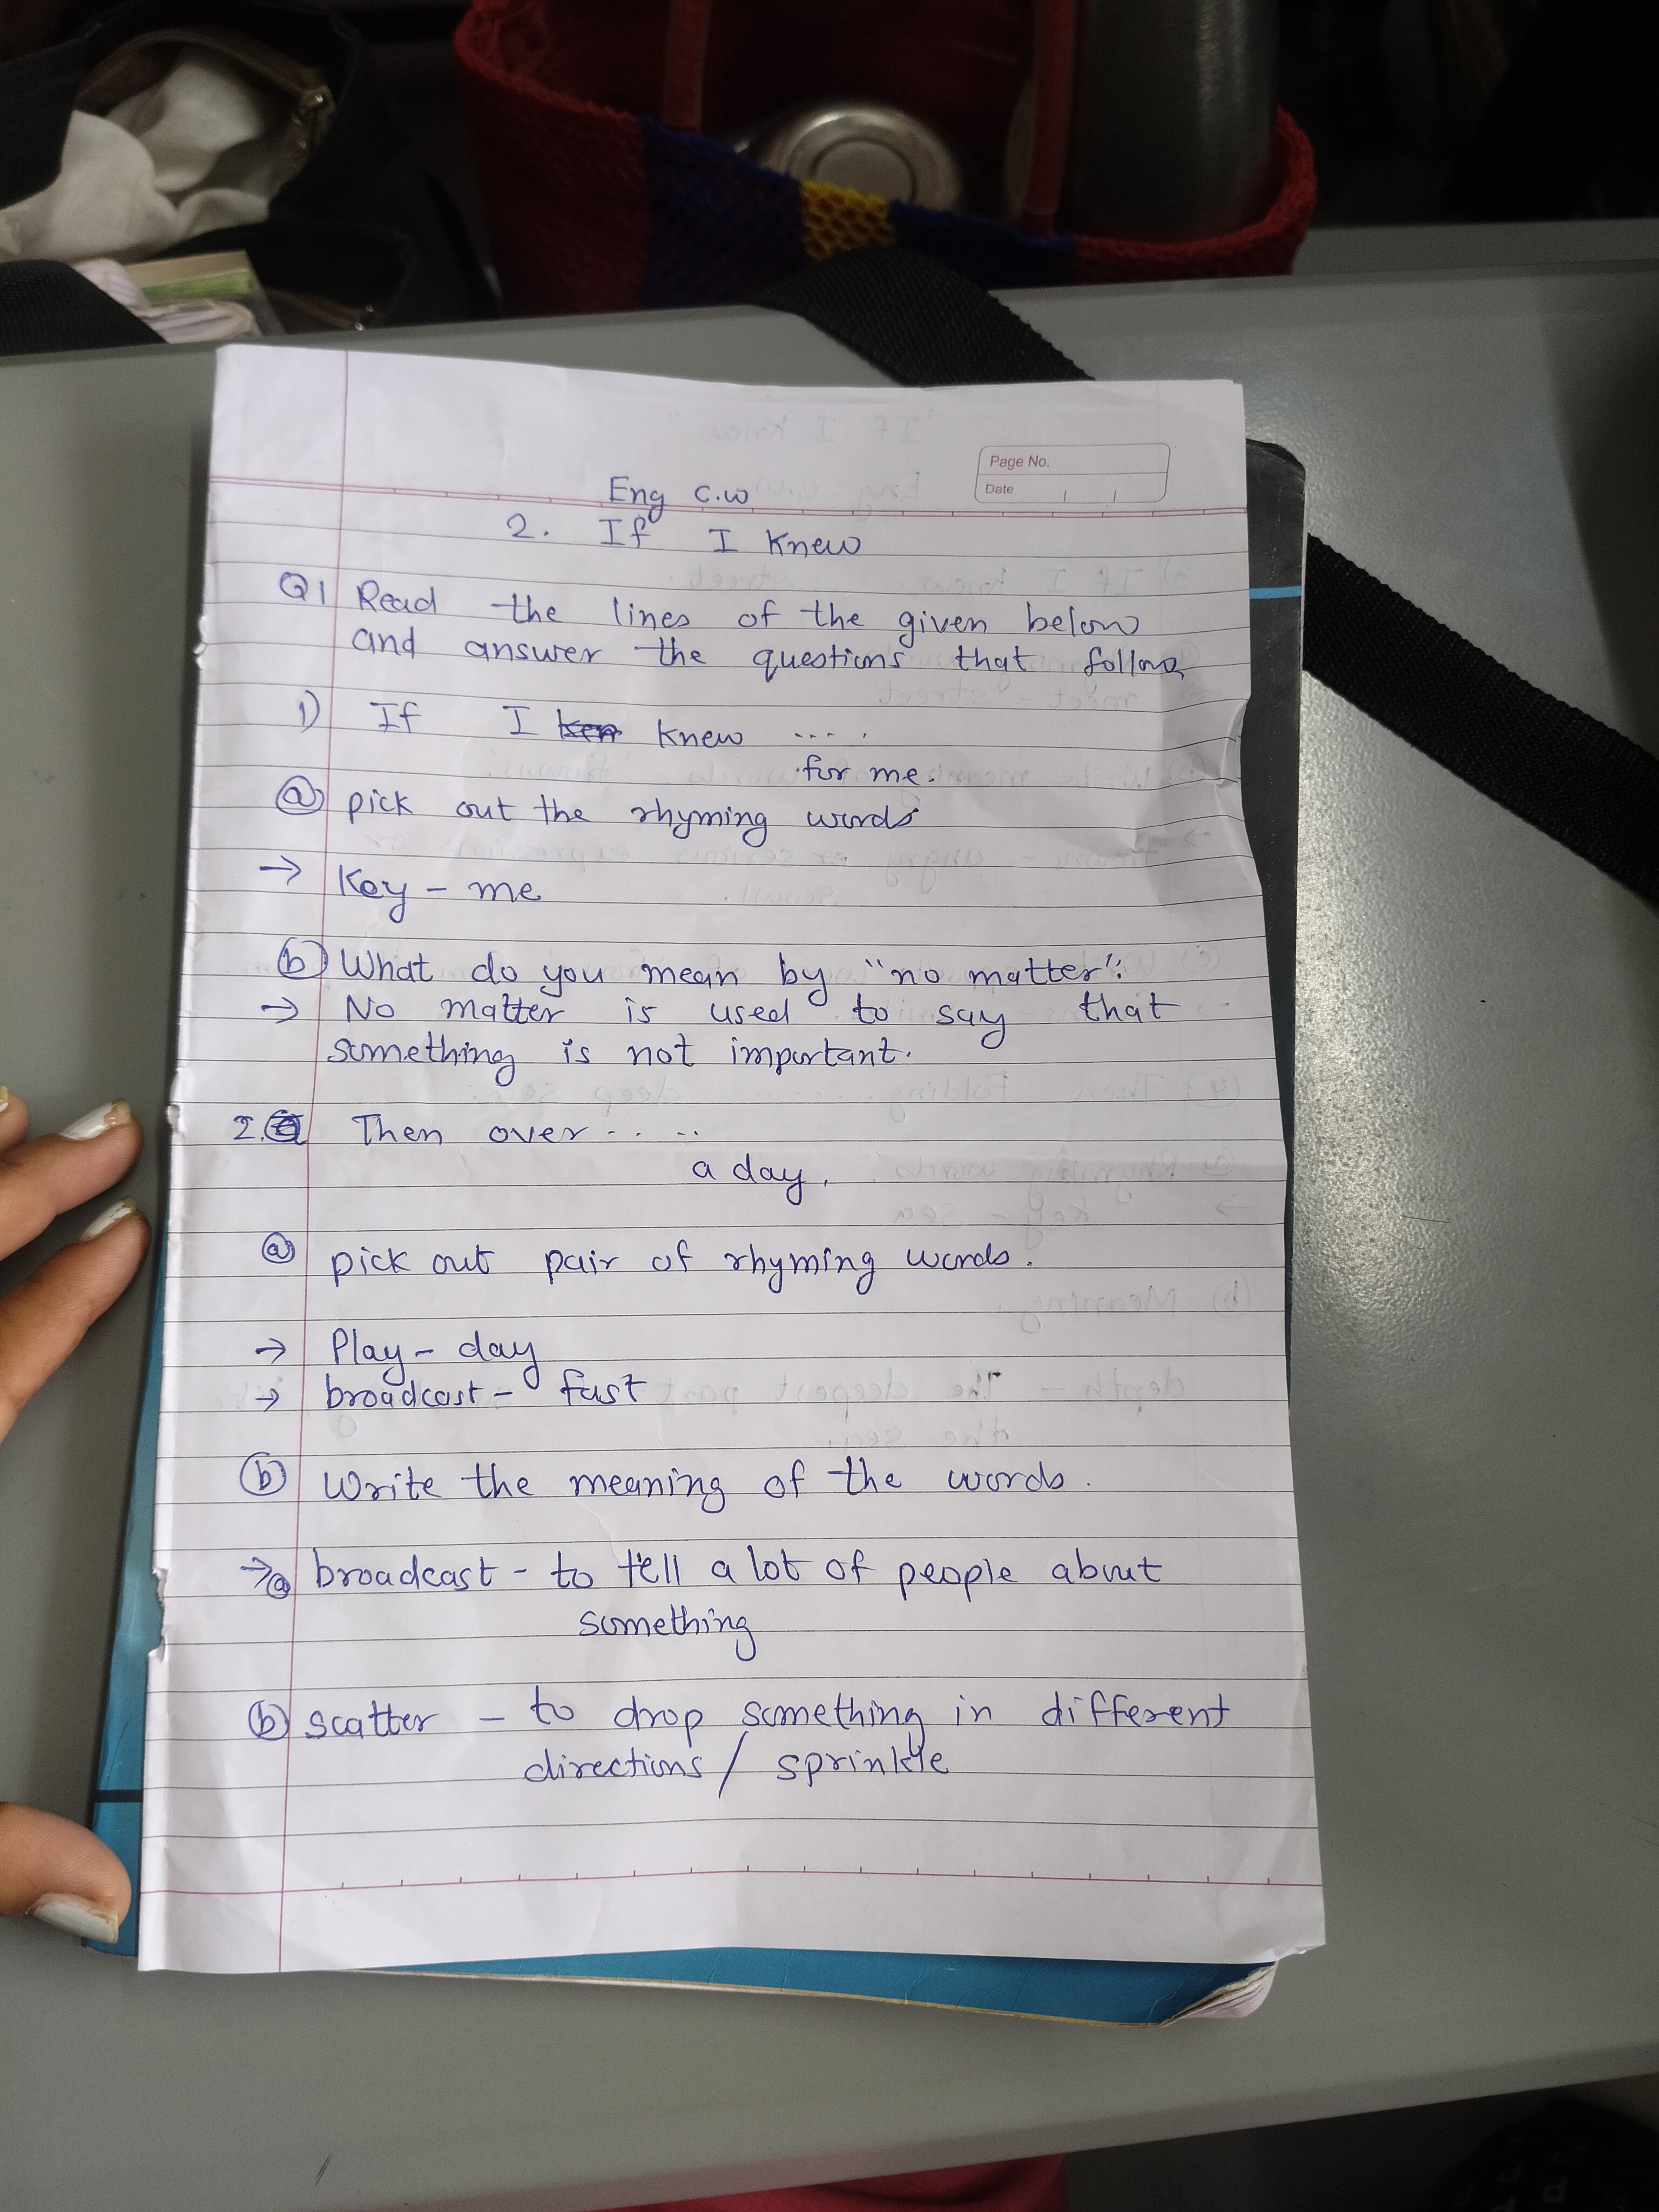 Page No.
Date
Eng C.W
2. If I Knew
Q1 Read the lines of the given below
and answer the questions that follow
1) If I knew ....
for me.
(a) pick out the rhyming words
→ Key - me
(b) What do you mean by "no matter".
→ No matter is used to say that
something is not important.
2. Then over .....
a day.
(a) pick out pair of rhyming words.
→ Play - day
→ broadcast - fast
(b) Write the meaning of the words.
→ (a) broadcast - to tell a lot of people about
something
(b) scatter - to drop something in different
directions / sprinkle